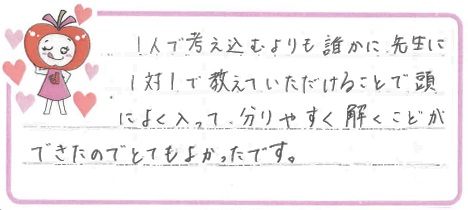 1人で考え込むよりも誰かに、先生に
1対1で教えていただけることで頭
によく入って、分りやすく解くことが
できたのでとてもよかったです。